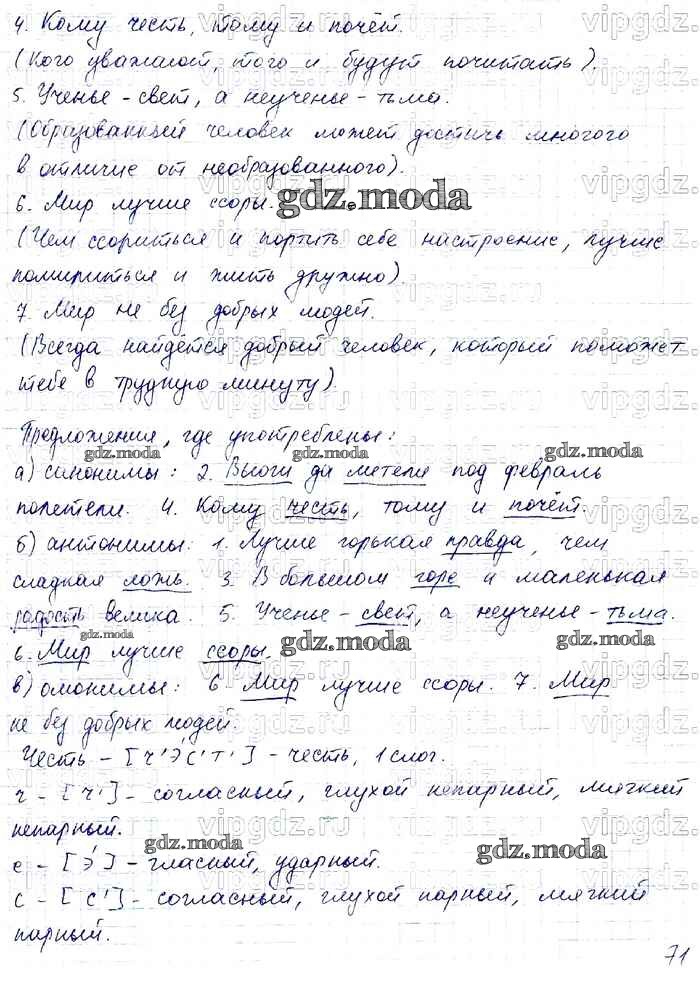 4. Кому честь, тому и почёт.
(Кого уважают, того и будут почитать).
5. Ученье - свет, а неученье - тьма.
(Образованный человек может достичь многого
в отличие от необразованного).
6. Мир лучше ссоры. gdz.moda
(Чем ссориться и портить себе настроение, лучше
помириться и жить дружно).
7. Мир не без добрых людей.
(Всегда найдётся добрый человек, который поможет
тебе в трудную минуту).
Предложения, где употреблены:
gdz.moda gdz.moda gdz.moda
а) синонимы: 2. Вьюги да метели под февраль
полетели. 4. Кому честь, тому и почёт.
б) антонимы: 1. Лучше горькая правда, чем
сладкая ложь. 3. В большом горе и маленькая
радость велика. 5. Ученье - свет, а неученье - тьма.
gdz.moda gdz.moda gdz.moda
6. Мир лучше ссоры.
в) омонимы: 6. Мир лучше ссоры. 7. Мир
не без добрых людей.
Честь - [ч'э́с'т'] - честь, 1 слог.
ч - [ч'] - согласный, глухой непарный, мягкий
непарный.
gdz.moda gdz.moda
е - [э́] - гласный, ударный.
с - [с'] - согласный, глухой парный, мягкий
парный.
71